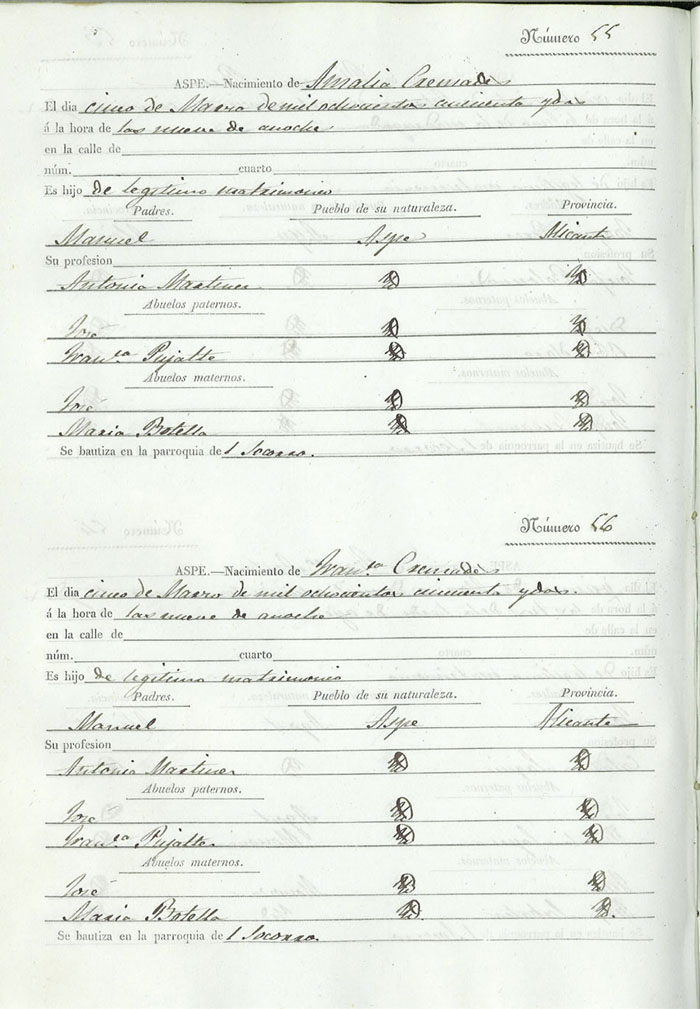 Número 55
ASPE.—Nacimiento de Amalia Cremades
El dia cinco de Marzo de mil ochocientos cincuenta y dos
á la hora de las nueve de anoche
en la calle de
núm. cuarto
Es hijo de legitimo matrimonio
Padres. Pueblo de su naturaleza. Provincia.
Manuel Aspe Alicante
Su profesion
Antonia Martinez
Abuelos paternos.
José
Fran.ca Pujalte
Abuelos maternos.
José
Maria Botella
Se bautiza en la parroquia del Socorro.
Número 56
ASPE.—Nacimiento de Fran.ca Cremades
El dia cinco de Marzo de mil ochocientos cincuenta y dos.
á la hora de las nueve de anoche
en la calle de
núm. cuarto
Es hijo de legitimo matrimonio
Padres. Pueblo de su naturaleza. Provincia.
Manuel Aspe Alicante
Su profesion
Antonia Martinez
Abuelos paternos.
José
Fran.ca Pujalte
Abuelos maternos.
José
Maria Botella
Se bautiza en la parroquia del Socorro.